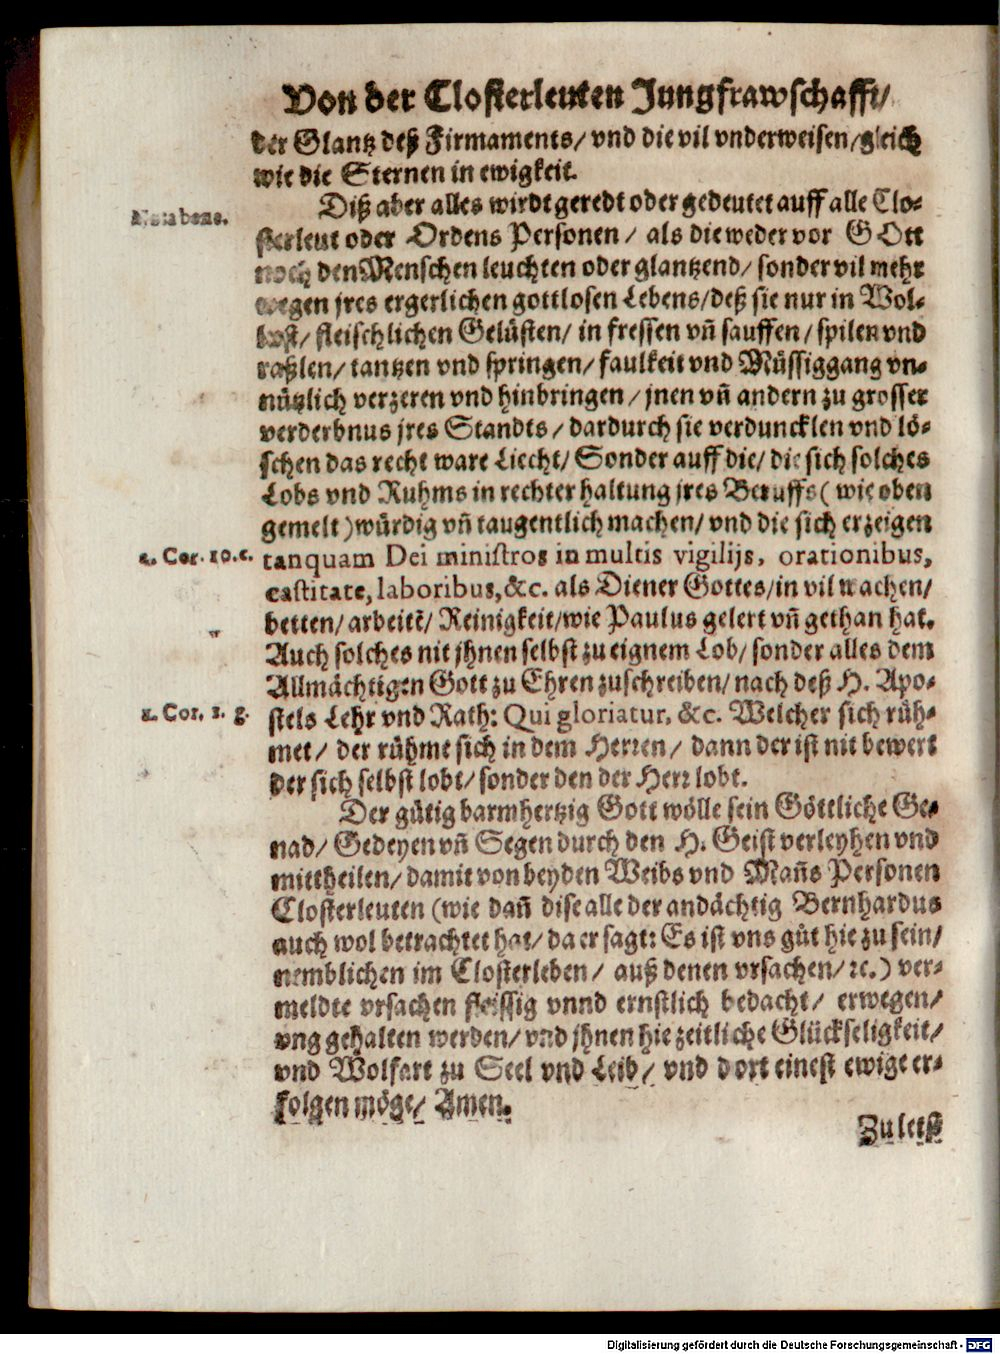 Von der Closterleuten Jungfrawschafft/
der Glantz deß Firmaments/ vnd die vil vnderweisen/ gleich
wie die Sternen in ewigkeit.
Notabene.
Diß aber alles wirdt geredt oder gedeutet auff alle Clo-
sterleut oder Ordens Personen/ als die weder vor GOtt
noch den Menschen leuchten oder glantzend/ sonder vil mehr
wegen jres ergerlichen gottlosen Lebens/ deß sie nur in Wol-
lust/ fleischlichen Gelüsten/ in fressen vñ sauffen/ spilen vnd
raßlen/ tantzen vnd springen/ faulkeit vnd Müssiggang vn-
nützlich verzeren vnd hinbringen/ jnen vñ andern zu grosser
verderbnus jres Standts/ dardurch sie verduncklen vnd lö-
schen das recht ware Liecht/ Sonder auff die/ die sich solches
Lobs vnd Ruhms in rechter haltung jres Beruffs (wie oben
gemelt) würdig vñ taugentlich machen/ vnd die sich erzeigen
2. Cor. 10. c.
tanquam Dei ministros in multis vigilijs, orationibus,
castitate, laboribus, &c. als Diener Gottes/ in vil wachen/
betten/ arbeitẽ/ Reinigkeit/ wie Paulus gelert vñ gethan hat.
Auch solches nit jhnen selbst zu eignem Lob/ sonder alles dem
Allmächtigen Gott zu Ehren zuschreiben/ nach deß H. Apo-
1. Cor. 1. g.
stels Lehr vnd Rath: Qui gloriatur, &c. Welcher sich rüh-
met/ der rühme sich in dem Herren/ dann der ist nit bewert
der sich selbst lobt/ sonder den der Herr lobt.
Der gütig barmhertzig Gott wölle sein Göttliche Ge-
nad/ Gedeyen vñ Segen durch den H. Geist verleyhen vnd
mittheilen/ damit von beyden Weibs vnd Mañs Personen
Closterleuten (wie dañ dise alle der andächtig Bernhardus
auch wol betrachtet hat/ da er sagt: Es ist vns gůt hie zu sein/
nemblichen im Closterleben/ auß denen vrsachen/ ꝛc.) ver-
meldte vrsachen fleissig vnnd ernstlich bedacht/ erwegen/
vng gehalten werden/ vnd jhnen hie zeitliche Glückseligkeit/
vnd Wolfart zu Seel vnd Leib/ vnd dort einest ewige er-
folgen möge/ Amen.
Zuletst
Digitalisierung gefördert durch die Deutsche Forschungsgemeinschaft - DFG